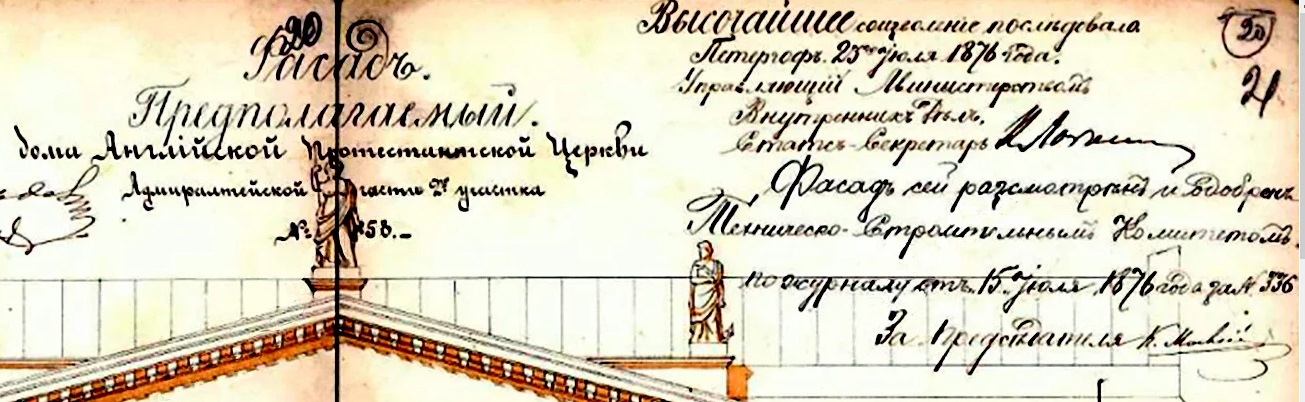 20
Фасадъ.
Предполагаемый.
дома Англійской Протестантской Церкви
Адмиралтейской части 2го участка
№
Высочайшее соизволеніе послѣдовало
Петергофъ. 25го Іюля 1876 года.
Управляющій Министерствомъ
Внутреннихъ Дѣлъ,
Статсъ-Секретарь
Фасадъ сей разсмотрѣнъ и одобренъ
Техническо-Строительнымъ Комитетомъ
по журналу отъ 15. Іюля 1876 года за № 336
За Предсѣдателя
20
21